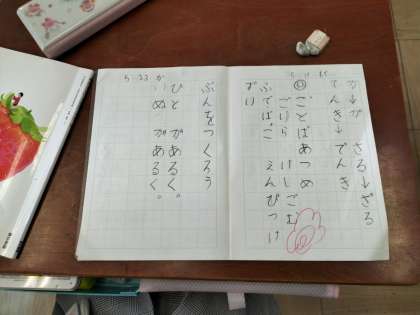 か→が さる→ざる
てんき→でんき
◎ことばあつめ
ごりら けしごむ
ふでばこ えんぴつけ
ずり
5 23 か
ぶんをつくろう
ひと があるく。
いぬ があるく。